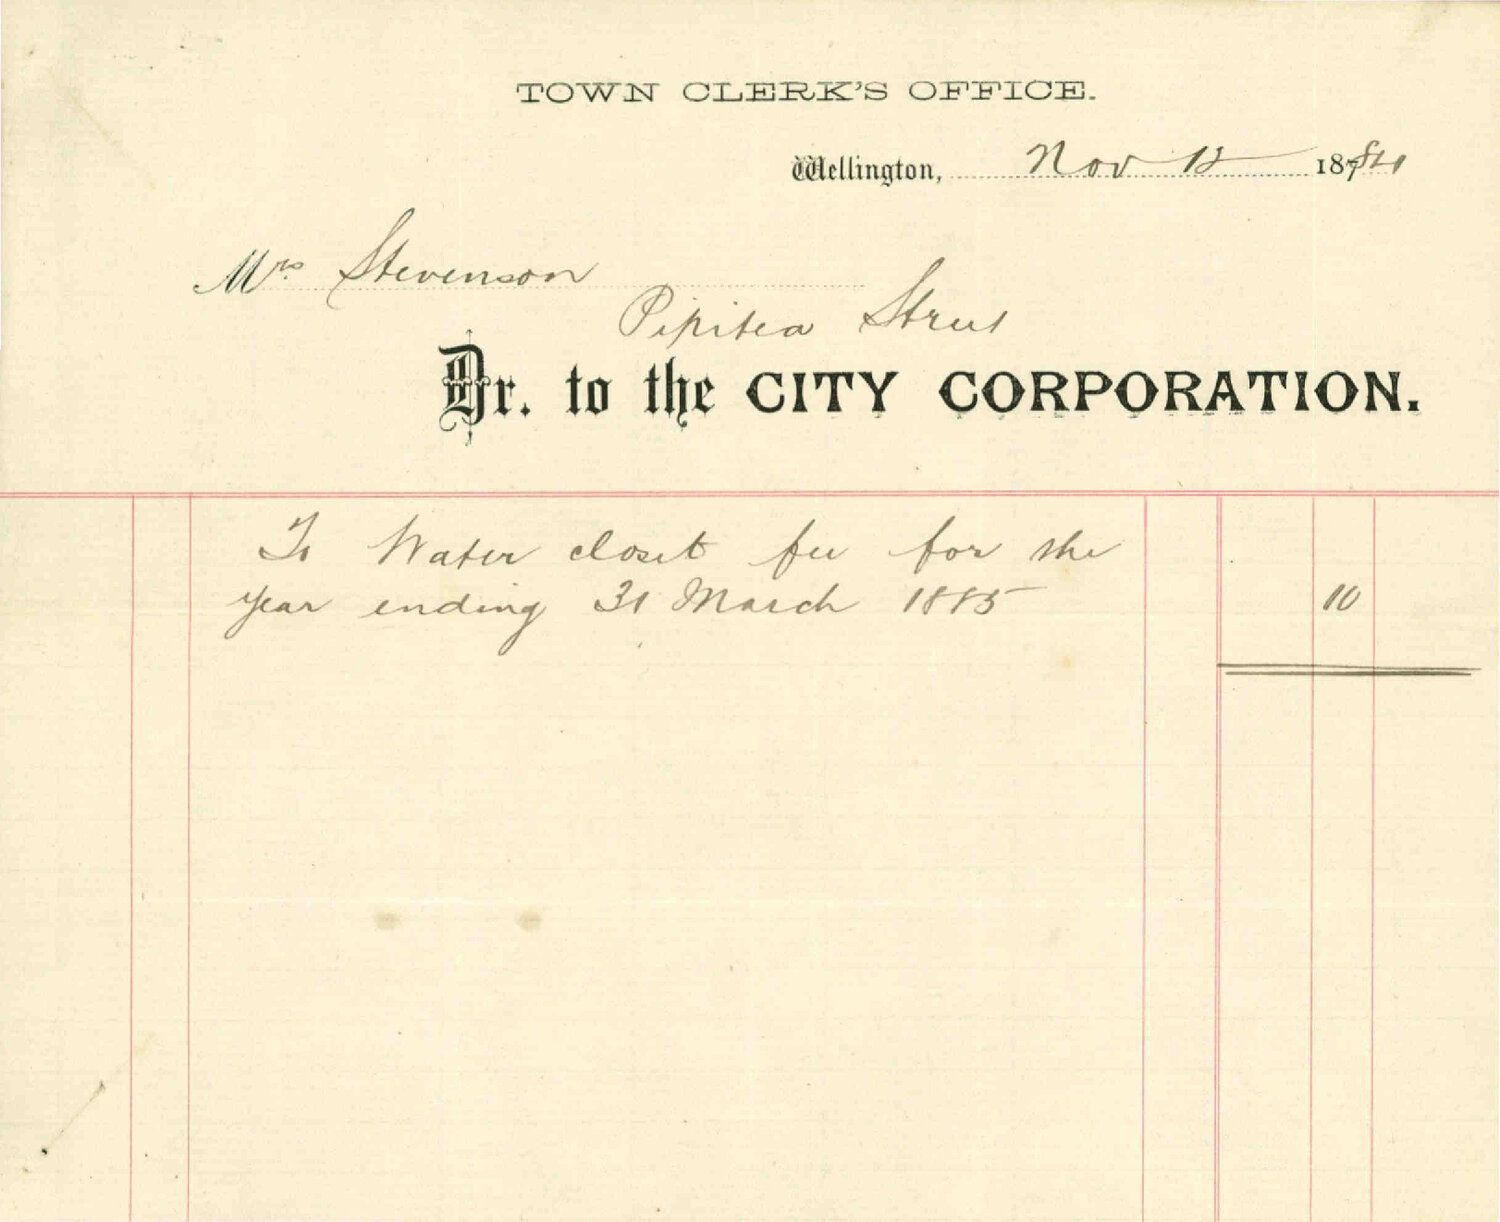 TOWN CLERK'S OFFICE.
Wellington, Nov 12 1884
Mrs Stevenson
Pipitea Street
Dr. to the CITY CORPORATION.
To Water closet fee for the
year ending 31 March 1885 10